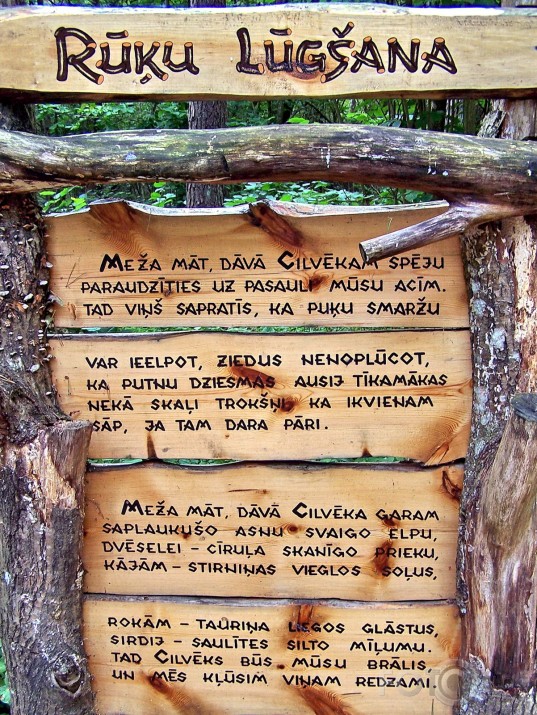 Rūķu Lūgšana
Meža māt, dāvā Cilvēkam spēju
paraudzīties uz pasauli mūsu acīm.
Tad viņš sapratīs, ka puķu smaržu
var ieelpot, ziedus nenoplūcot,
ka putnu dziesmas ausij tīkamākas
nekā skaļi trokšņi, ka ikvienam
sāp, ja tam dara pāri.
Meža māt, dāvā Cilvēka garam
saplaukušo asnu svaigo elpu,
dvēselei – cīruļa skanīgo prieku,
kājām – stirniņas vieglos soļus,
rokām – tauriņa liegos glāstus,
sirdij – saulītes silto mīļumu.
Tad Cilvēks būs mūsu brālis,
un mēs kļūsim viņam redzami.